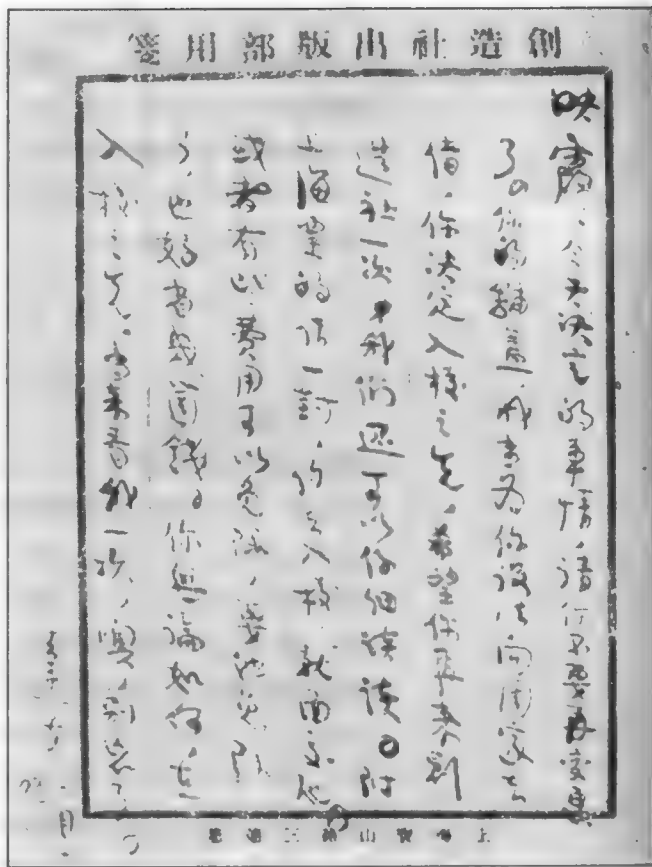 創造社出版部用箋
映霞、今天決定的事情，請你不要再變更
了。你的鋪蓋，我來為你設法向周家去
借，你決定入校之先，希望你再來創
造社一次，我們還可以仔細談談。附
上海粟的信一封，你去入校，就面交他
或者有些費用可以免除，
了，也好省幾個錢。你無論如何，在
入校之先，要來看我一次，別忘了
上海寶山路三德里